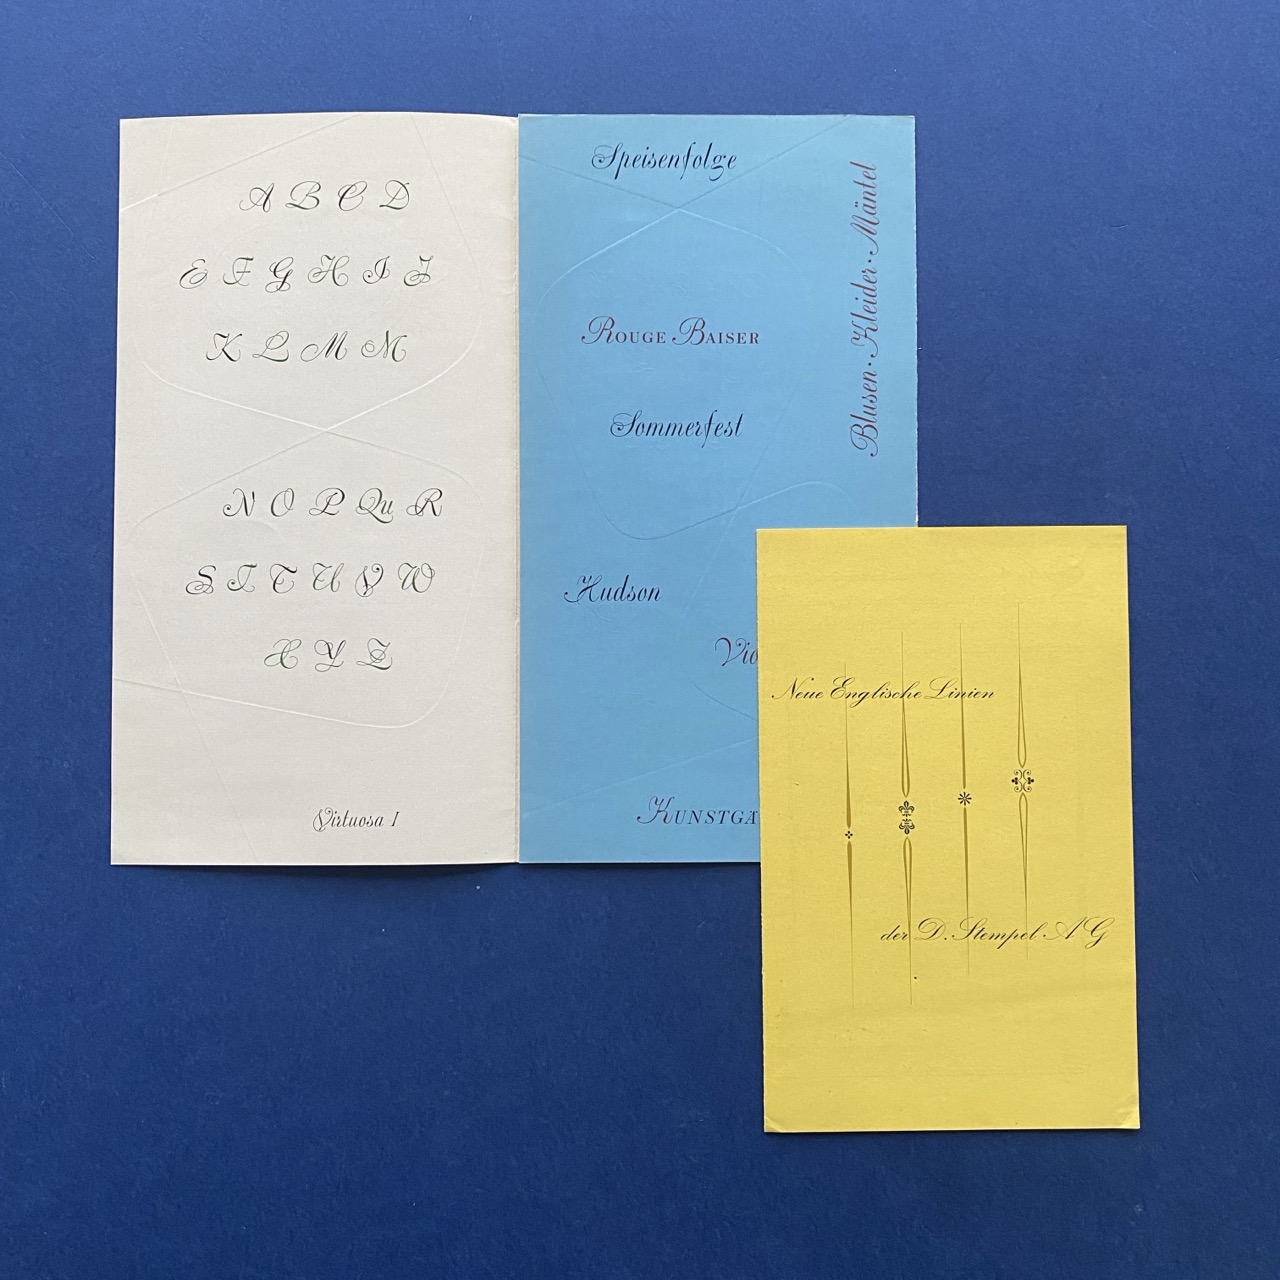 A B C D
E F G H I J
K L M M
N O P Qu R
S T T U V W
X Y Z
Virtuosa I
Speisenfolge
Blusen · Kleider · Mäntel
ROUGE BAISER
Sommerfest
Hudson
Vio
KUNSTGÄ
Neue Englische Linien
der D. Stempel AG